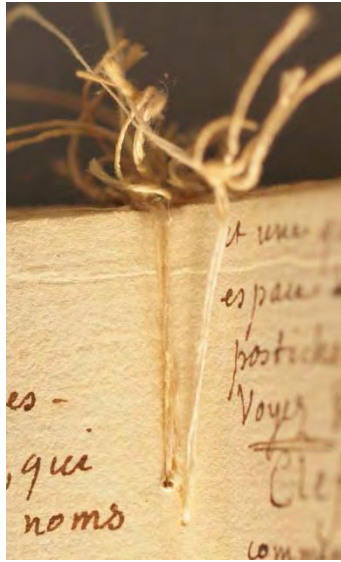 es-
, qui
noms
et une
espace
postiche
Voyez
Cle
comm